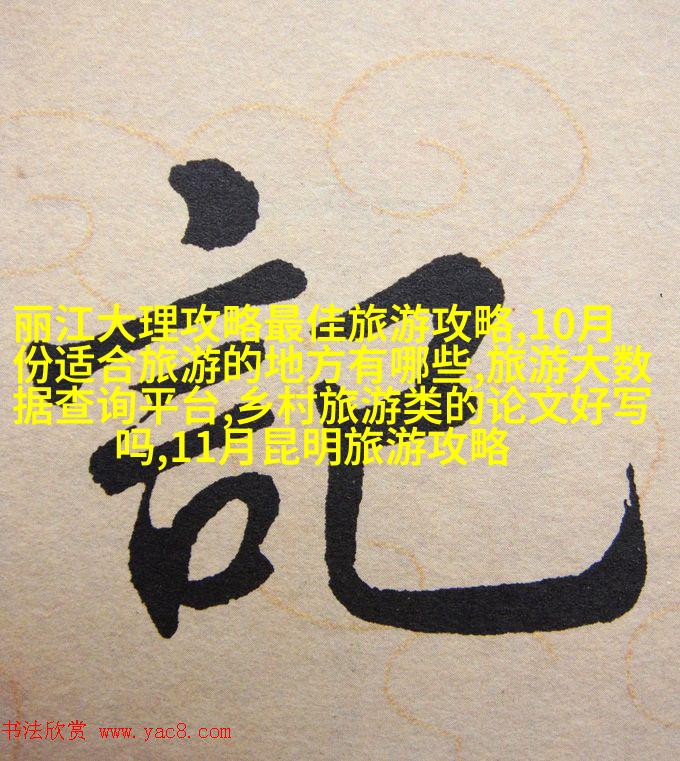 記
丽江大理攻略最佳旅游攻略,10月
份适合旅游的地方有哪些,旅游大数
据查询平台,乡村旅游类的论文好写
吗,11月昆明旅游攻略
书法欣赏 www.yac8.com